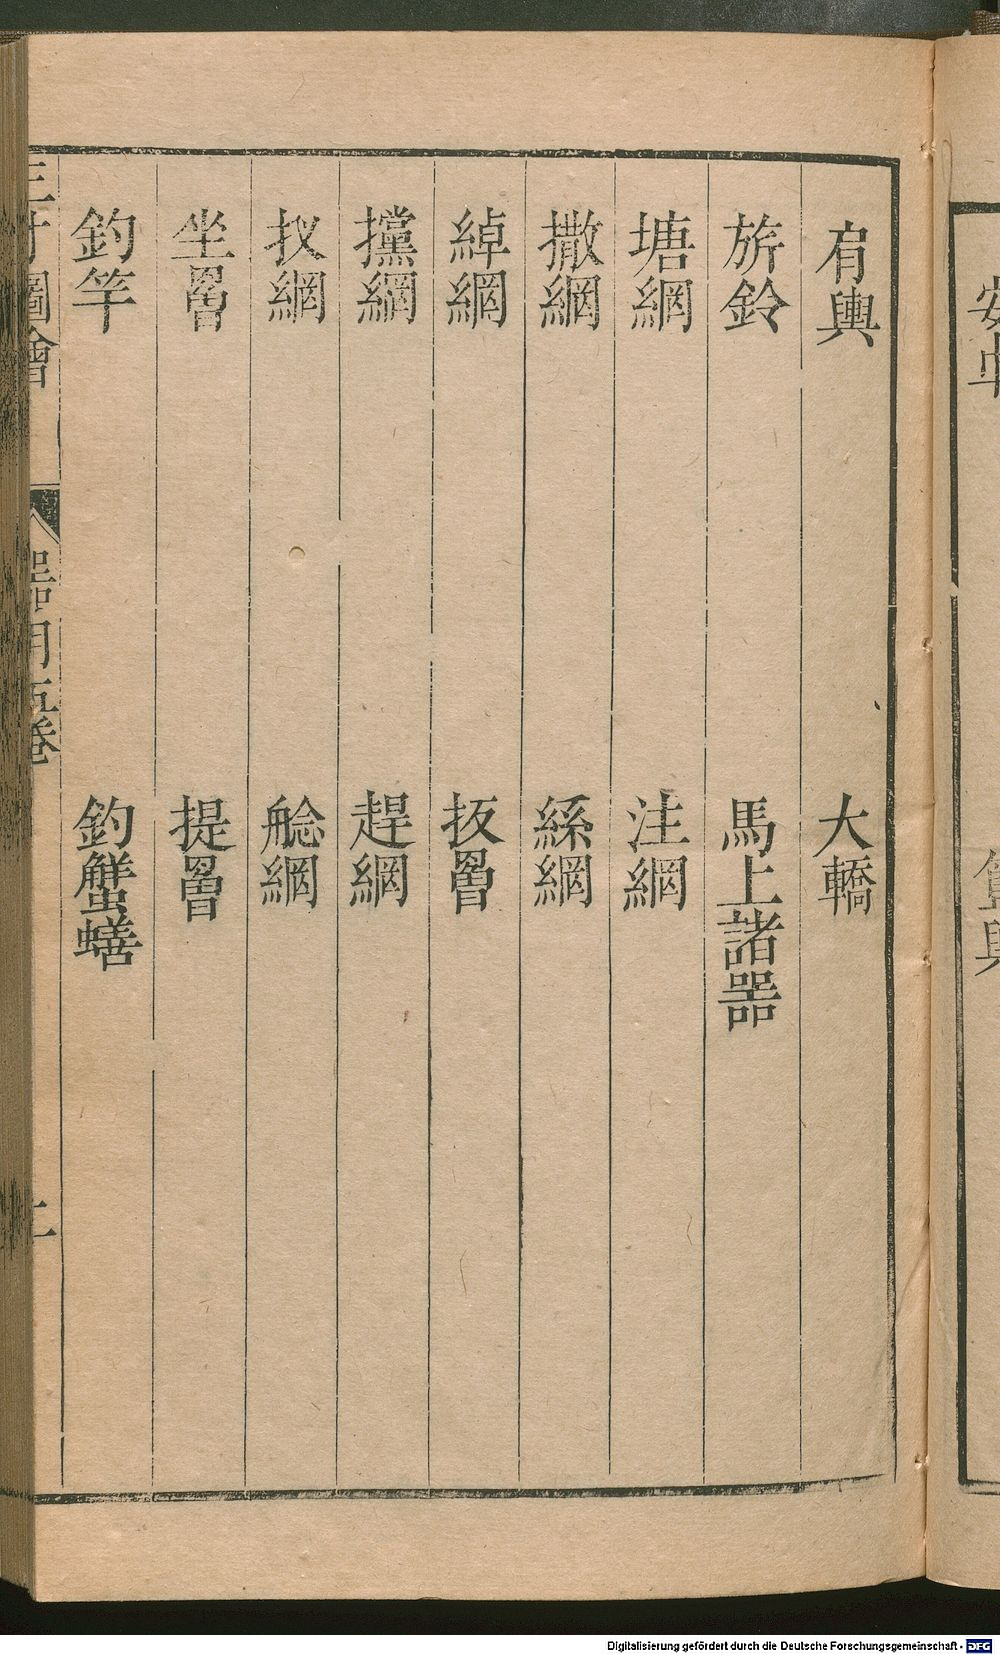 肩輿　大轎
旂鈴　馬上諸器
塘網　注網
撒網　絲網
綽網　扳罾
攩網　趕網
扠網　艌網
坐罾　提罾
釣竿　釣蟹蟮
三才圖會　器用五卷　二
Digitalisierung gefördert durch die Deutsche Forschungsgemeinschaft - DFG